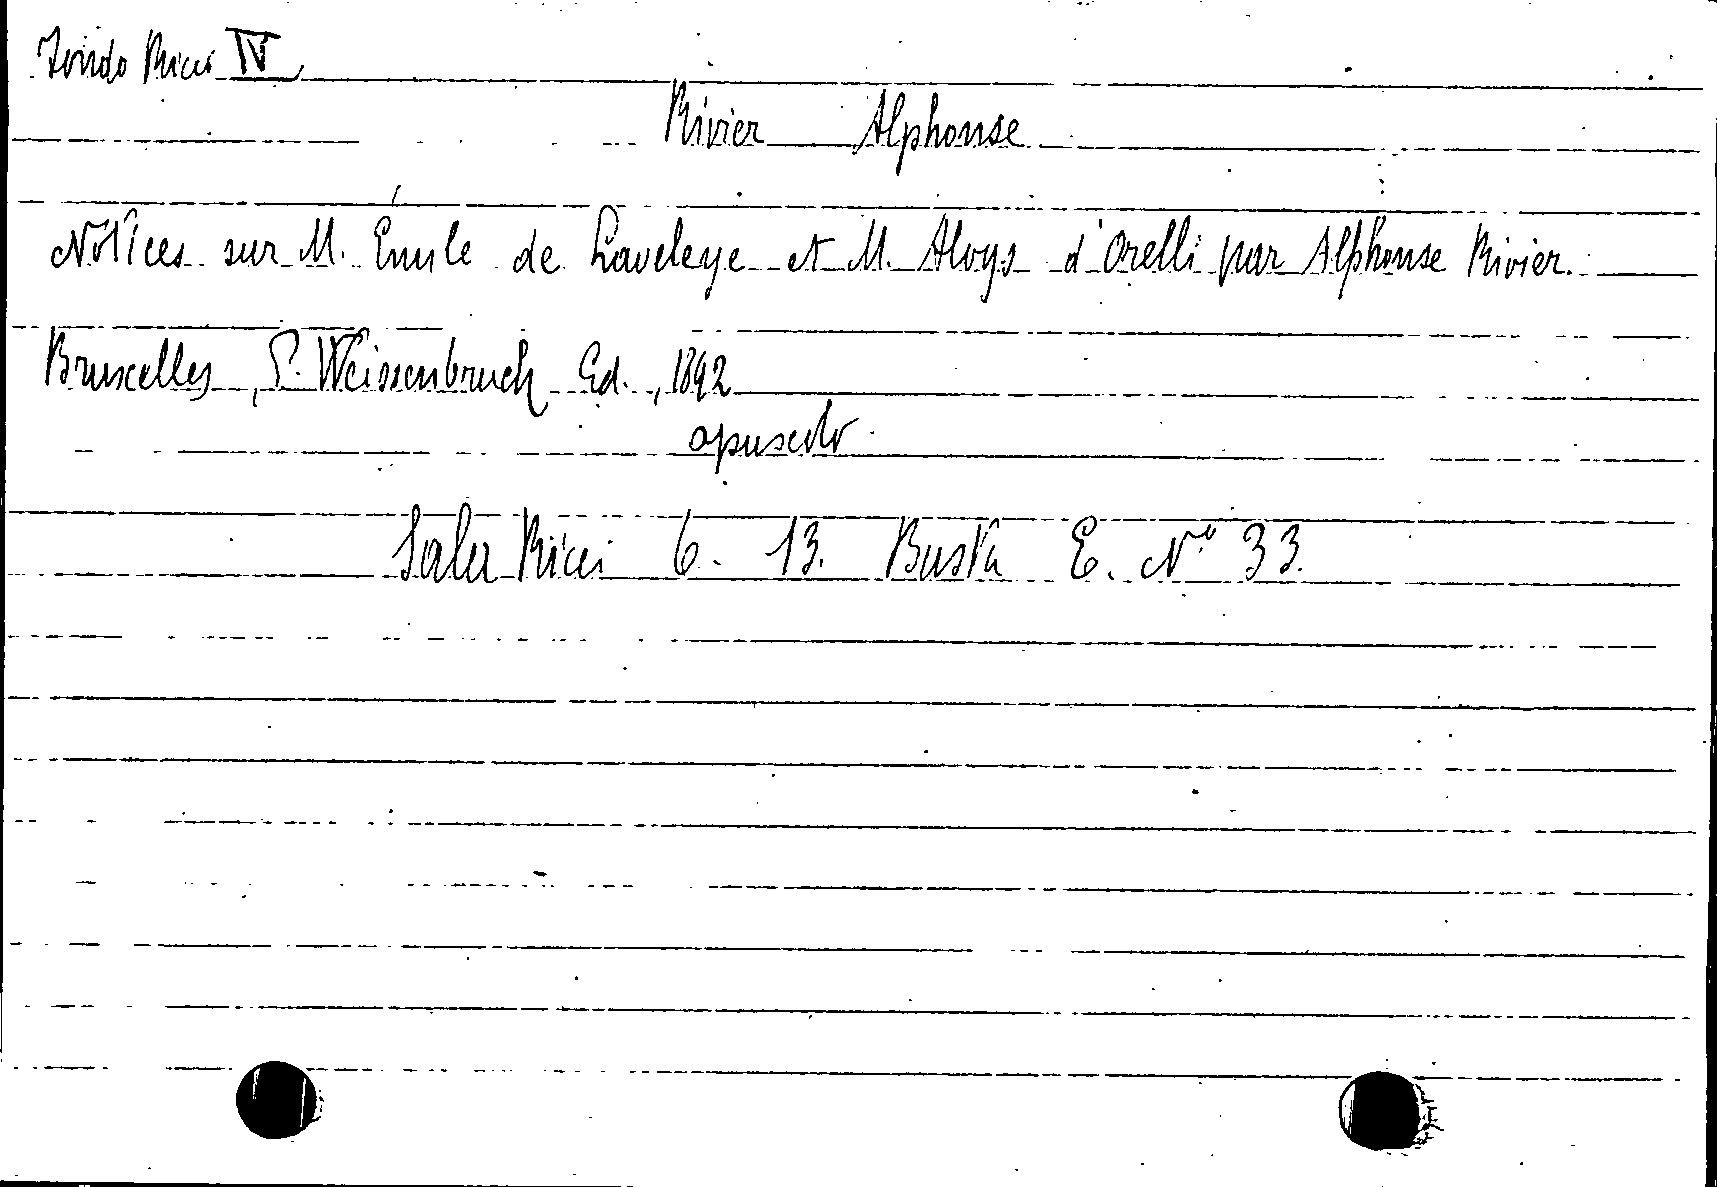 Fondo Ricci IV
Rivier Alphonse
Notices sur M. Émile de Laveleye et M. Aloys d'Orelli par Alphonse Rivier.
Bruxelles, P. Weissenbruch Ed., 1892
opuscolo
Sala Ricci 6. 13. Busta E. N.° 33.